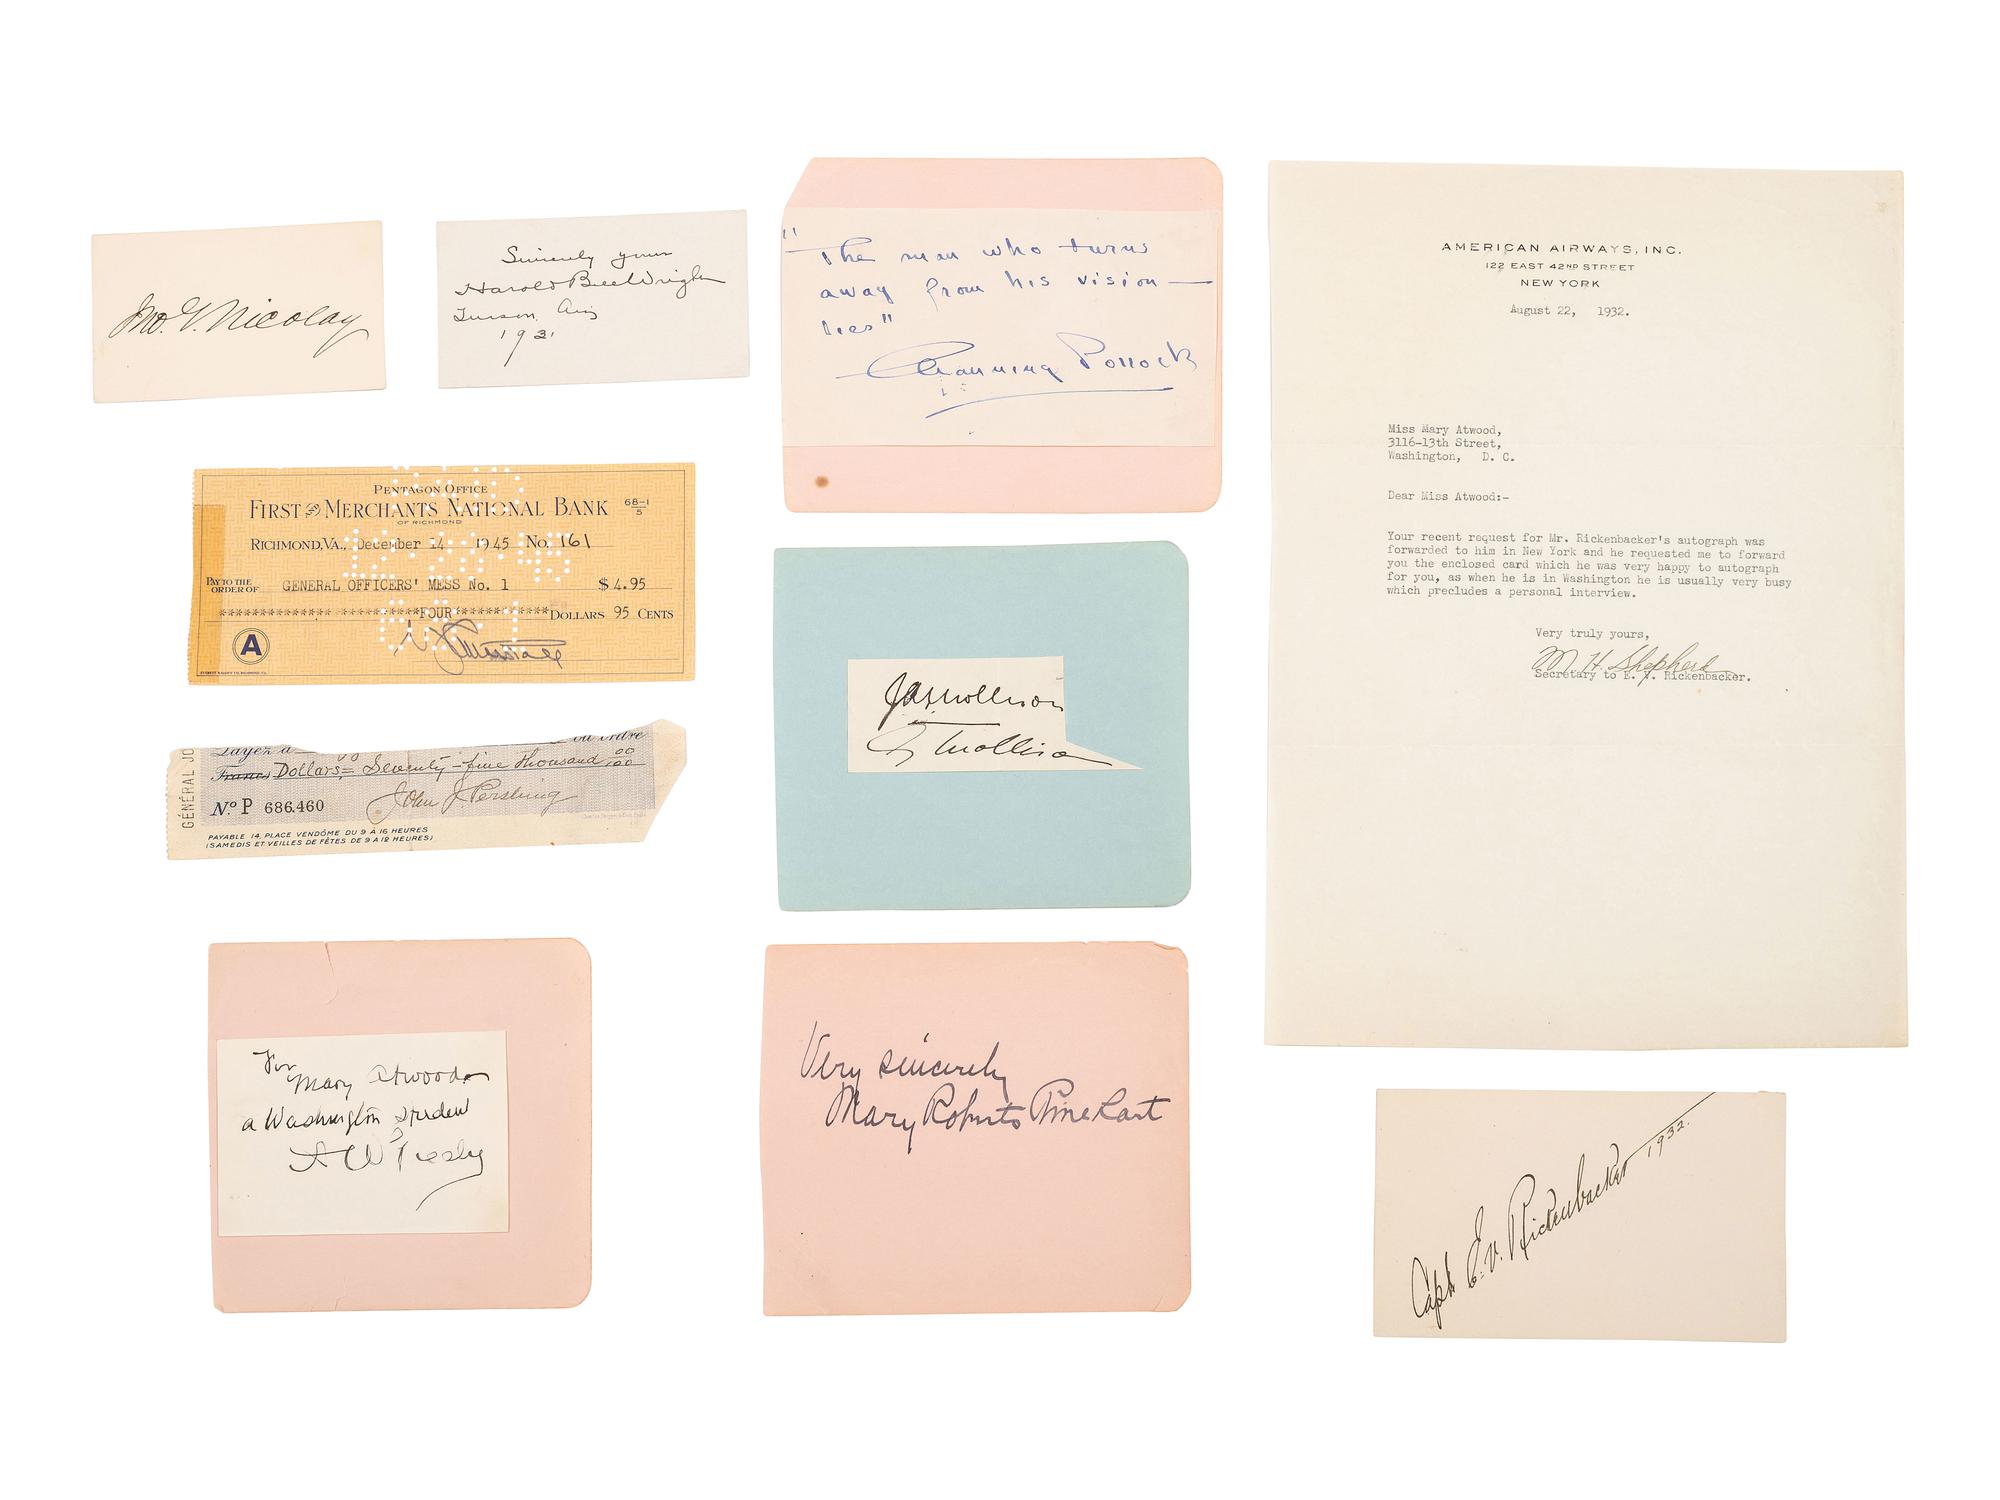 Jno. G. Nicolay
Sincerely yours
Harold Bell Wright
Tucson, Ariz
1931
"The man who turns
away from his vision —
dies"
Channing Pollock
AMERICAN AIRWAYS, INC.
122 EAST 42ND STREET
NEW YORK
August 22, 1932.
Miss Mary Atwood,
3116-13th Street,
Washington, D. C.
Dear Miss Atwood:-
Your recent request for Mr. Rickenbacker's autograph was
forwarded to him in New York and he requested me to forward
you the enclosed card which he was very happy to autograph
for you, as when he is in Washington he is usually very busy
which precludes a personal interview.
Very truly yours,
M. H. Shepherd
Secretary to E. V. Rickenbacker.
PENTAGON OFFICE
FIRST AND MERCHANTS NATIONAL BANK
OF RICHMOND
68-1
5
RICHMOND, VA., December 14 1945 No. 161
PAY TO THE
ORDER OF GENERAL OFFICERS' MESS No. 1 $ 4.95
******************FOUR************** DOLLARS 95 CENTS
A
GÉNÉRAL JO
Payez à ou ordre
Francs Dollars = Seventy-five thousand 00/100
No. P 686.460
John J. Pershing
PAYABLE 14, PLACE VENDÔME DU 9 À 16 HEURES
(SAMEDIS ET VEILLES DE FÊTES DE 9 À 12 HEURES)
JAMollison
Mollison
For
Mary Atwood
a Washington
A W
Very sincerely
Mary Roberts Rinehart
Capt. E. V. Rickenbacker 1932.